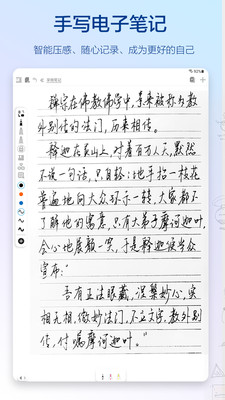 手写电子笔记
智能压感、随心记录、成为更好的自己
禅宗在佛教佛学中,素来被称为教
外别传的法门,历来相传。
释迦在灵山上,对着百万人天,默然
不说一句话,只自轻轻地手拈一枝花
普遍地向大众环示一转,大家都不
了解他的寓意,只有大弟子摩诃迦叶,
会心地展颜一笑,于是释迦便当众
宣布:
吾有正法眼藏,涅槃妙心,实
相无相,微妙法门,不立文字,教外别
传,付嘱摩诃迦叶。”